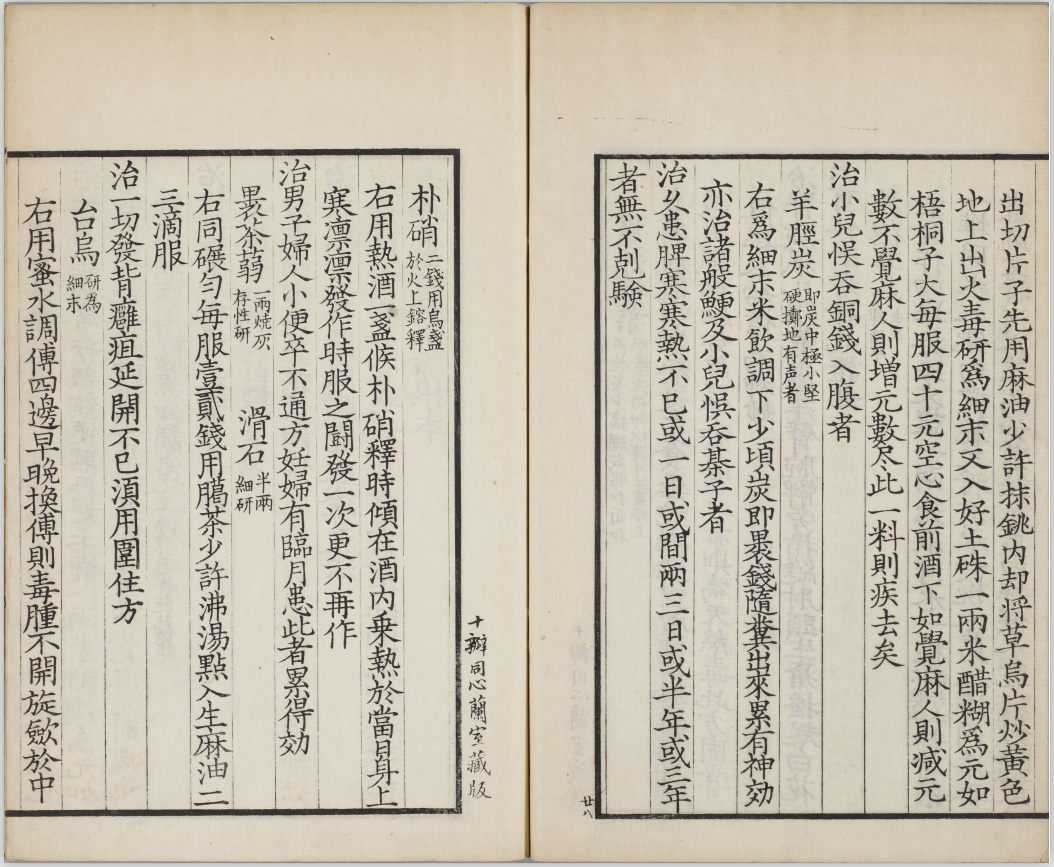 出切片子先用麻油少許抹銚内却将草烏片炒黃色
地上出火毒研爲細末又入好土硃一兩米醋糊爲元如
梧桐子大每服四十元空心食前酒下如覺麻人則减元
數不覺麻人則增元數尽此一料則疾去矣
治小兒悞吞銅錢入腹者
羊脛炭 即炭中極小堅硬擲地有声者
右爲細末米飲調下少頃炭即裹錢隨糞出來累有神効
亦治諸般鯁及小兒悞吞棊子者
治久患脾寒寒熱不已或一日或間兩三日或半年或三年
者無不剋驗
廿八
朴硝 二錢用烏盞於火上鎔釋
右用熱酒一盞候朴硝釋時傾在酒内乗熱於當日身上
寒凛凛發作時服之鬭發一次更不再作
治男子婦人小便卒不通方妊婦有臨月患此者累得効
裹茶蒻 一兩燒灰存性研 滑石 半兩細研
右同碾勻每服壹貳錢用臈茶少許沸湯點入生麻油二
三滴服
治一切發背癰疽延開不已湏用圍住方
台烏 研為細末
右用蜜水調傅四邊早晚換傅則毒腫不開旋歛於中
十瓣同心蘭室藏版